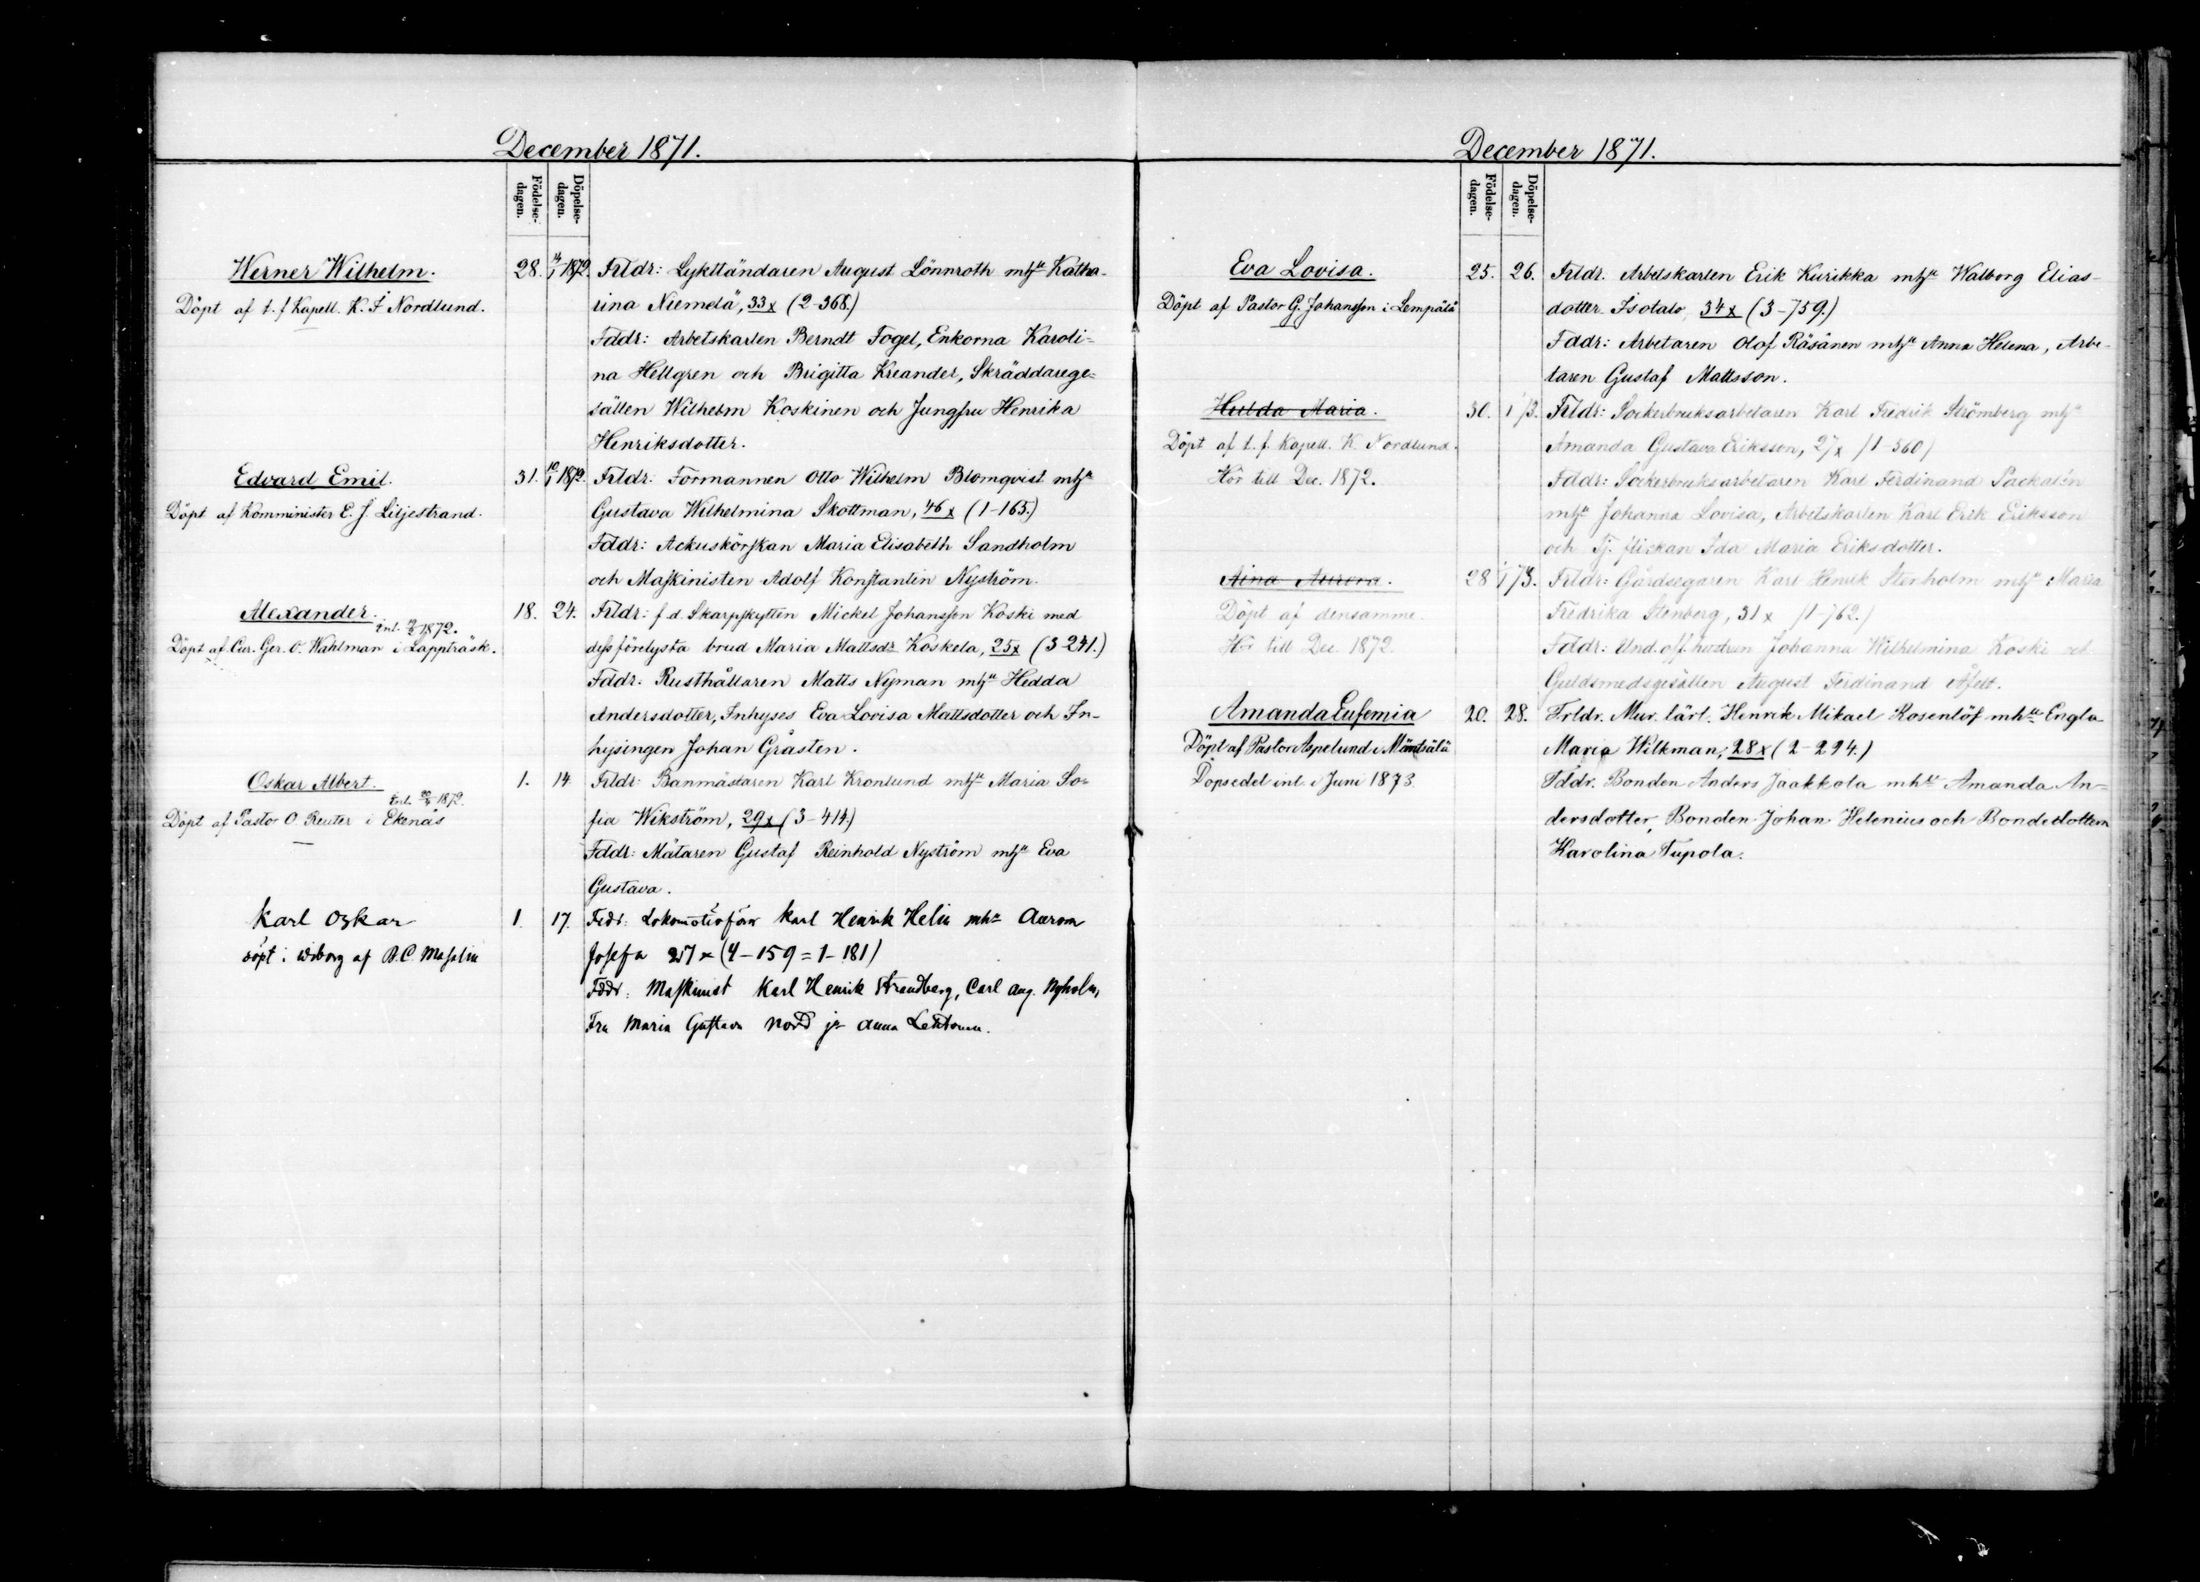 December 1871.
Födelse-dagen.
Döpelse-dagen.
Werner Wilhelm.
28. 14/1 1872.
Döpt af t. f. Kapell. K. F. Nordlund.
Frldr: Lykttändaren August Lönnroth mhu Katha-
rina Niemelä, 33x (2-368.)
Fddr: Arbetskarlen Berndt Fogel, Enkorna Karoli-
na Hellgren och Brigitta Kreander, Skräddarege-
sällen Wilhelm Koskinen och Jungfru Henrika
Henriksdotter.
Edvard Emil.
31. 10/1 1872.
Döpt af Komminister E. J. Liljestrand.
Frldr: Formannen Otto Wilhelm Blomqvist mhu
Gustava Wilhelmina Skottman, 46x (1-163.)
Fddr: Ackuskörskan Maria Elisabeth Sandholm
och Maskinisten Adolf Konstantin Nyström.
Alexander.
18. 24.
Döpt af Cur. Ger. O. Wahlman i Lappträsk.
Frldr: f.d. Skarpskytten Mickel Johansson Koski med
dess förelysta brud Maria Mattsdr Koskela, 25x (3-241.)
Fddr: Rusthållaren Matts Nyman mhu Hedda
Andersdotter, Inhyses Eva Lovisa Mattsdotter och In-
hysingen Johan Gråsten.
Oskar Albert.
1. 14
Döpt af Pastor O. Reuter i Ekenäs
Frldr: Banmästaren Karl Kronlund mhu Maria So-
fia Wikström, 29x (3-414.)
Fddr: Mätaren Gustaf Reinhold Nyström mhu Eva
Gustava.
Karl Oskar
1. 17.
döpt i Wiborg af B.C. Masalin
Frdr: Lokomotivför Karl Henrik Helin mhu Aurora
Josefa (4-159=1-181)
Fddr: Maskinist Karl Henrik Strandberg, Carl Aug. Nyholm,
Fru Maria Gustava Nord ja Anna
December 1871.
Födelse-dagen.
Döpelse-dagen.
Eva Lovisa.
25. 26.
Döpt af Pastor G. Johansson i Lempälä
Frldr. Arbetskarlen Erik Kurikka mhu Walborg Elias-
dotter Isotalo, 34x (3-759.)
Fddr: Arbetaren Olof Räsänen mhu Anna Helena, Arbe-
taren Gustaf Mattsson.
Hulda Maria.
30.
Döpt af t. f. Kapell. K. Nordlund.
Hör till Dec. 1872.
Frldr: Sockerbruksarbetaren Karl Fredrik Strömberg mhu
Amanda Gustava Eriksson, 27x (1-560)
Fddr: Sockerbruksarbetaren Karl Ferdinand Packalén
mhu Johanna Lovisa, Arbetskarlen Karl Erik Eriksson
och Tj. flickan Ida Maria Eriksdotter.
Aina Aurora.
28
Döpt af densamme.
Hör till Dec. 1872.
Frldr: Gårdsegaren Karl Henrik Stenholm mhu Maria
Fredrika Stenberg, 31x (1-762.)
Fddr: Und.off.hustrun Johanna Wilhelmina Koski och
Guldsmedsgesällen August Ferdinand
Amanda Eufemia
20. 28.
Döpt af Pastor Aspelund i Mäntsälä
Döpsedel inl. i Juni 1873.
Frldr. Mur. lärl. Henrik Mikael Rosenlöf mhu Engla
Maria Wilkman, 28x (2-294.)
Fddr. Bonden Anders Jaakkola mhu Amanda An-
dersdotter, Bonden Johan Helenius och Bondedottern
Karolina Tupola.